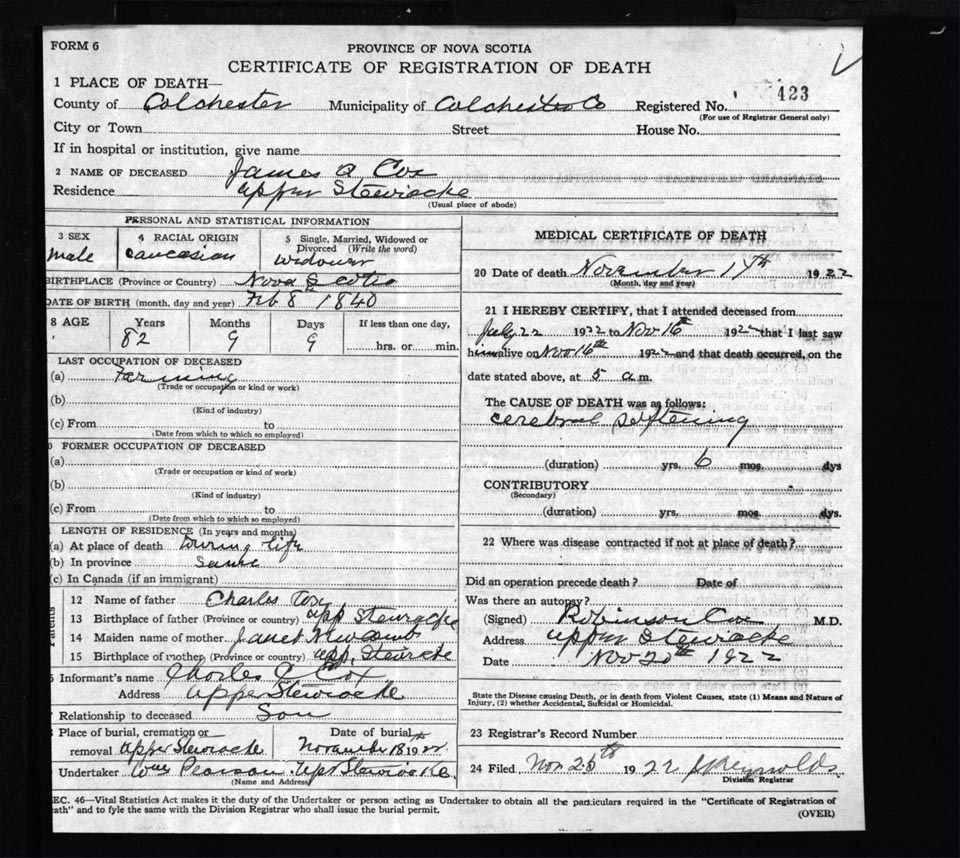 FORM 6
PROVINCE OF NOVA SCOTIA
CERTIFICATE OF REGISTRATION OF DEATH
1 PLACE OF DEATH—
County of Colchester Municipality of Colchester Co Registered No. 423
(For use of Registrar General only)
City or Town Street House No.
If in hospital or institution, give name
2 NAME OF DECEASED James A Cox
Residence Upper Stewiacke
(Usual place of abode)
PERSONAL AND STATISTICAL INFORMATION
3 SEX 4 RACIAL ORIGIN 5 Single, Married, Widowed or
Divorced (Write the word)
male Caucasian widower
BIRTHPLACE (Province or Country) Nova Scotia
DATE OF BIRTH (month, day and year) Feb 8th 1840
8 AGE Years Months Days If less than one day,
82 9 9 hrs. or min.
LAST OCCUPATION OF DECEASED
(a) Farming
(Trade or occupation or kind or work)
(b)
(Kind of industry)
(c) From to
(Date from which to which so employed)
FORMER OCCUPATION OF DECEASED
(a)
(Trade or occupation or kind of work)
(b)
(Kind of industry)
(c) From to
(Date from which to which so employed)
LENGTH OF RESIDENCE (In years and months)
(a) At place of death During life
(b) In province Same
(c) In Canada (if an immigrant)
Parents
12 Name of father Charles Cox
13 Birthplace of father (Province or country) Upp Stewiacke
14 Maiden name of mother Janet Newcomb
15 Birthplace of mother (Province or country) Upp. Stewicke
Informant's name Charles C. Cox
Address Upper Stewiacke
Relationship to deceased Son
Place of burial, cremation or Date of burial
removal Upper Stewiacke November 18th 1922
Undertaker Wm Pearson Upr Stewiacke.
(Name and Address)
MEDICAL CERTIFICATE OF DEATH
20 Date of death November 17th 1922
(Month, day and year)
21 I HEREBY CERTIFY, that I attended deceased from
July 22 1922 to Nov 16th 1922 that I last saw
him alive on Nov 16th 1922 and that death occurred, on the
date stated above, at 5 a.m.
The CAUSE OF DEATH was as follows:
Cerebral Softening
(duration) yrs. 6 mos. dys
CONTRIBUTORY
(Secondary)
(duration) yrs. mos. dys.
22 Where was disease contracted if not at place of death?
Did an operation precede death? Date of
Was there an autopsy?
(Signed) Robinson Cox M.D.
Address Upper Stewiacke
Date Nov 20th 1922
State the Disease causing Death, or in death from Violent Causes, state (1) Means and Nature of
Injury, (2) whether Accidental, Suicidal or Homicidal.
23 Registrar's Record Number
24 Filed Nov 25th 1922 J Reynolds
Division Registrar
SEC. 46—Vital Statistics Act makes it the duty of the Undertaker or person acting as Undertaker to obtain all the particulars required in the "Certificate of Registration of
eath" and to fyle the same with the Division Registrar who shall issue the burial permit.
(OVER)